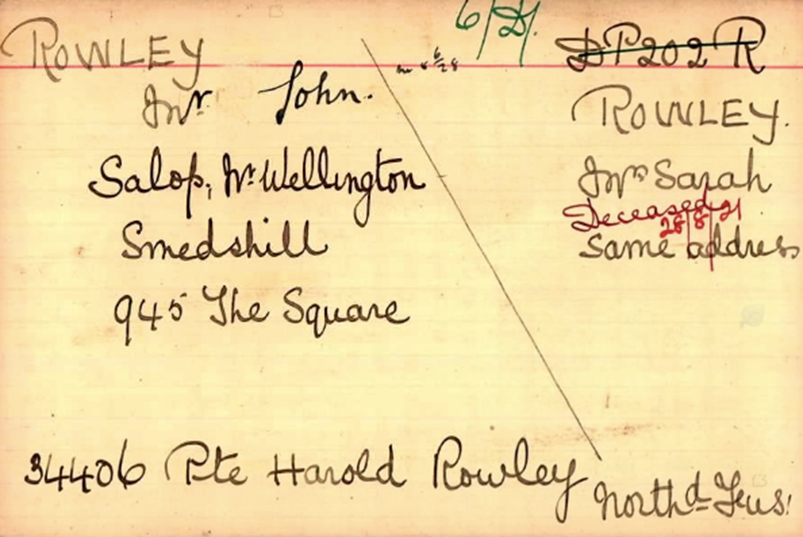 6/D/.
ROWLEY
Mr John.
Salop, Nr Wellington
Snedshill
945 The Square
DP202 R
ROWLEY.
Mrs Sarah
Deceased 28/8/21
same address
34406 Pte Harold Rowley
Northd Fus: